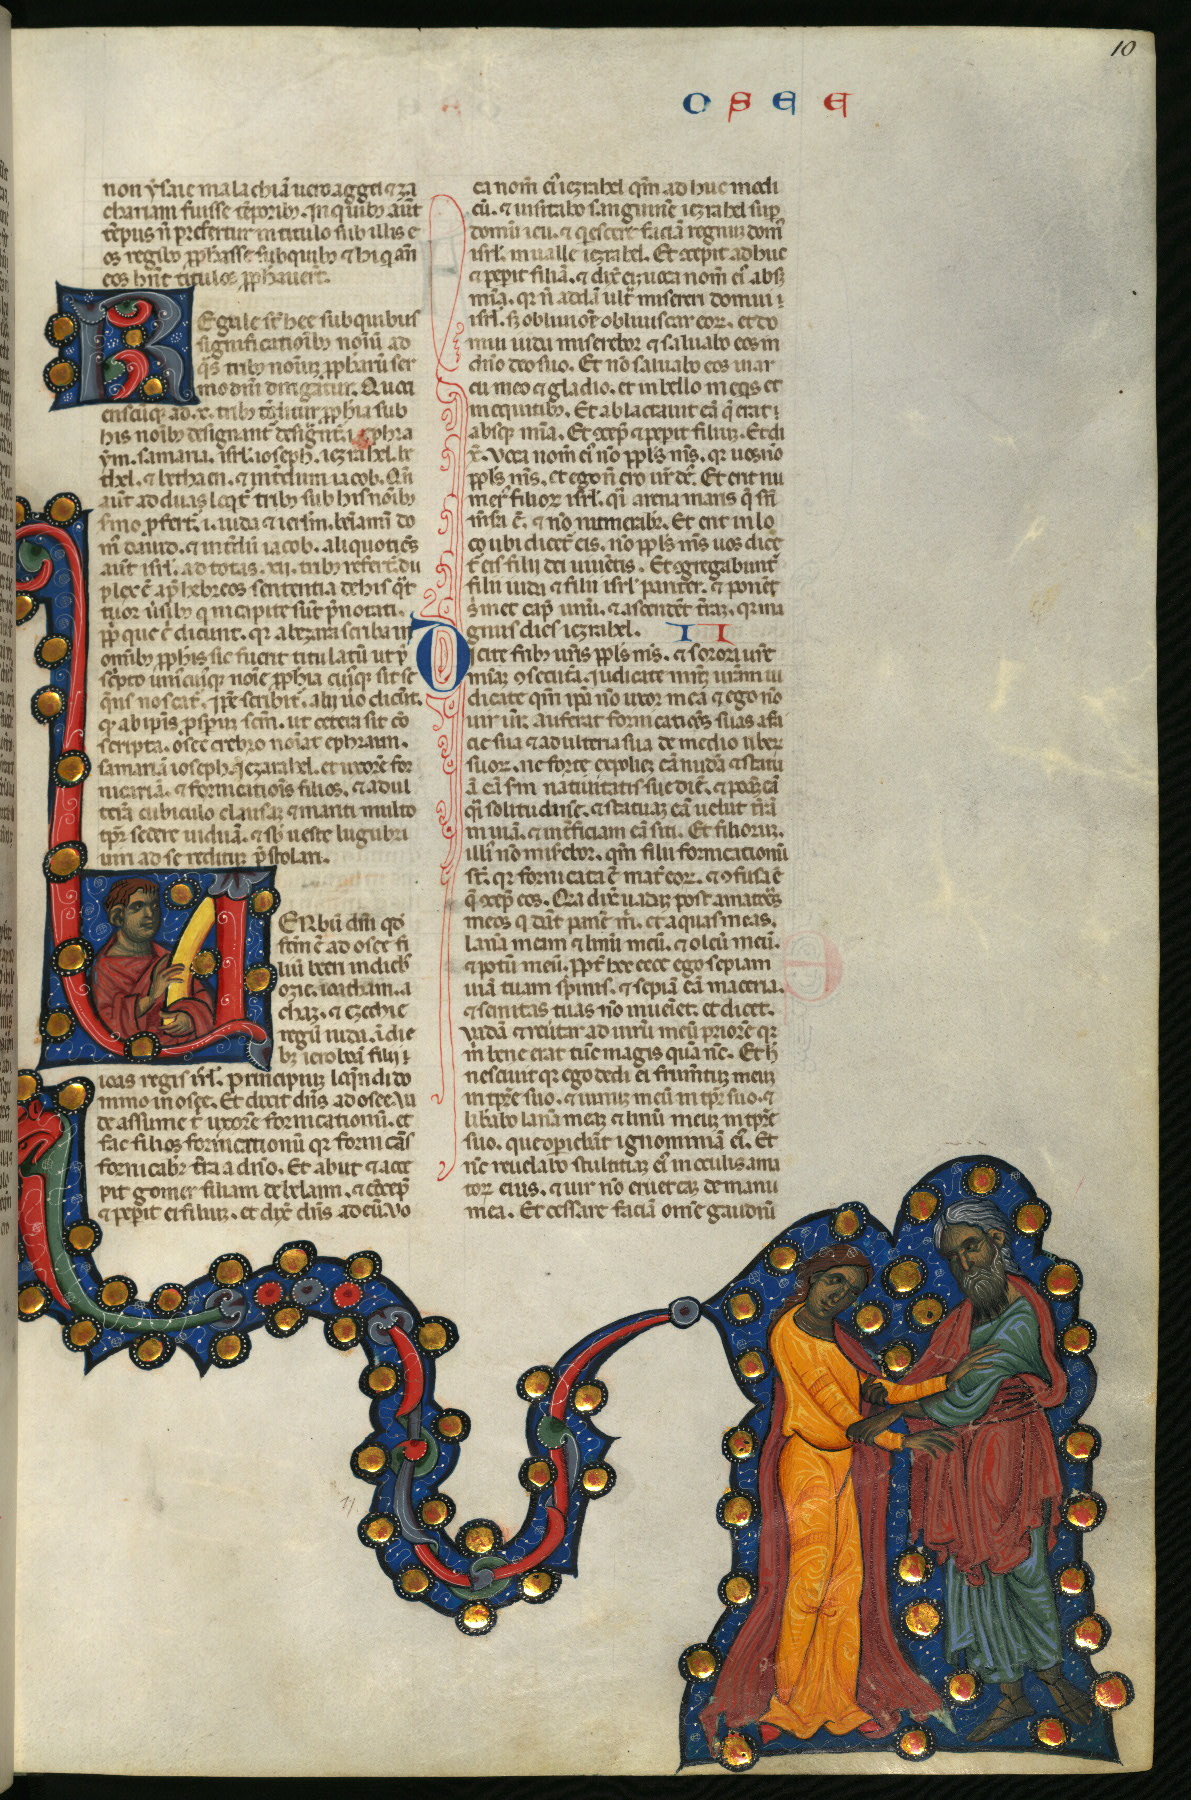 10
OSEE
non ysaie malachiā uero aggei ⁊ za
chariam fuisse tēporibȝ. In quibȝ aūt
tēpus nō prefertur in titulo sub illis e
os regibȝ pphasse sub quibȝ ⁊ hi q̇ an̄
eos hn̄t titulos pphauert.
REgule st̄ hee sub quibus
significationibȝ noīuȝ ad
q̄s tribȝ noīuȝ ppharū ser
mo dnī dirigatur. Quoti
enscūqȝ ad .x. tribȝ pphia sub
his noībȝ designant
ym. samaria. isrl. ioseph. iezrahel. be
thel. ⁊ bethaen. ⁊ interdum iacob. Qn̄
aūt ad duas loqr̄ tribȝ sub his noībȝ
sermo pfert. i. iuda ⁊ ierlm. beniamī do
m̄ dauid. ⁊ intdū iacob. aliquotiēs
aūt isrl. ad totas .xii. tribȝ refert. du
plex ē ap̄ hebreos sententia de his q̄t
tuor ūsibȝ q in capite sūt p̄notati.
pp̄ que ē dicunt. qr ab ezra scriba in
omībȝ pphis sic fuerit titulatū ut p̄
sc̄pto uniˀcuiqȝ noīe pphia cuiqȝ sit se
q̄ns noscat. ip̄e scribit. alii uō dicūt.
qȝ ab ipīs p sp̄m scm̄. ut cetera sit cō
scripta. Osee crebro noīat ephraim.
samariā ioseph. iezrahel. et uxorē for
nicariā. ⁊ fornicationis filios. ⁊ adul
terā cubiculo clausaȝ ⁊ mariti multo
tp̄r sedere uiduā. ⁊ sb ueste lugubri
uiri ad se reditūȝ p̄stolari.
UERbū dn̄i qd̄
fctm̄ ē ad osee fi
lium beeri in diebȝ
ozie. ioathan. a
chaz. ⁊ ezechie
regū iuda. ī die
bȝ ieroboā filii i
ioas regis irl̄. Principiuȝ loqn̄di do
mino in osee. Et dixit dn̄s ad osee. Va
de assume t̄ uxorē fornicationū. et
fac filios fornicationū qr fornicās
fornicabr̄ t̄ra a dn̄o. Et abiit ⁊ acce
pit gomer filiam debelaim. ⁊ cōcep̄
⁊ pepit ei filiuȝ. et dix̄ dn̄s ad eū. Vo
ca nom̄ eī iezrahel qm̄ ad huc modi
cū. ⁊ uisitabo sanguinē iezrahel sup
domū ieu. ⁊ q̇escere faciā regnuȝ dom̄
isrl. in ualle iezrahel. Et cōcepit ad huc
⁊ pepit filiā. ⁊ dix̄ ei. uoca nom̄ eī absqȝ
mīa. qr n̄ addā ult̄ misereri domui i
isrl. sȝ obliuiōe obliuiscar eoꝝ. et do
mui iuda miserebor ⁊ saluabo eos in
dn̄o deo suo. Et nō saluabo eos in ar
cu meo ⁊ gladio. et in bello in eq̇s et
in equitibȝ. Et ablactauit eā q̄ erat i
absqȝ mīa. Et cōcep̄ ⁊ pepit filiuȝ. Et di
x̄. Uoca nom̄ eī nō ppl̄s m̄s. qr uos nō
ppl̄s m̄s. et ego n̄ ero ur̄ ds̄. Et erit nu
mer̄ filioꝝ isrl. q̄i arena maris q̄ sn̄
m̄sura ē. ⁊ nō numerabr̄. Et erit in lo
co ubi dicet̄ eis. nō ppl̄s m̄s uos dicet
r̄ eis filii dei uiuētis. Et cōgregabunt̄
filii iuda ⁊ filii isrl pariter. ⁊ ponēt
s̄ met cap̄ unū. ⁊ ascendēt de t̄ra. qr ma
gnus dies iezrahel. II
Dicite fr̄ibȝ ur̄is ppl̄s m̄s. ⁊ sorori ur̄e
mīaȝ ɔsecuta. Iudicate mr̄em ur̄am iu
dicate qm̄ ip̄a nō uxor mea ⁊ ego nō
uir eīꝰ. auferat fornicatiōes suas a fa
cie sua ⁊ adulteria sua de medio uber
suoꝝ. ne forte expoliē eā nudā ⁊ statu
ā eā s̄m natiuitatis sue diē. ⁊ ponā eā
q̄i solitudinē. ⁊ statuaȝ eā uelut t̄rā
inuiā. ⁊ int̄ficiam eā siti. Et filioruȝ
illī nō mis̄ebor. qm̄ filii fornicationū
st̄. qr fornicata ē mat̄ eoꝝ. ⁊ ɔfusa ē
q̄ ɔcep̄ eos. Qia dix̄ uadā post amatoȓs
meos q̇ dāt panē m̄. et aquas meas.
lanā meam ⁊ linū meū. ⁊ oleū meū.
⁊ potū meū. Ppt̄ hoc ecce ego sepiam
uiā tuam spinis. ⁊ sepiā eā maceria.
⁊ semitas suas nō inueniet. et dicet.
Vadā ⁊ reūtar ad uirū meū priorē qr
m̄ bene erat tūc magis quā nc̄. Et h̄
nesciuit qr ego dedi ei frum̄tuȝ meuȝ
in tp̄re suo. ⁊ uinuȝ meū in tp̄r suo. ⁊
libabo lanā meaȝ ⁊ linū meuȝ in tp̄re
suo. que opiebāt ignominiā eī. Et
nc̄ reuelabo stultitiaȝ eī in oculis ama
toꝝ eius. ⁊ uir nō eruet eaȝ de manu
mea. Et cessare faciā om̄e gaudiū